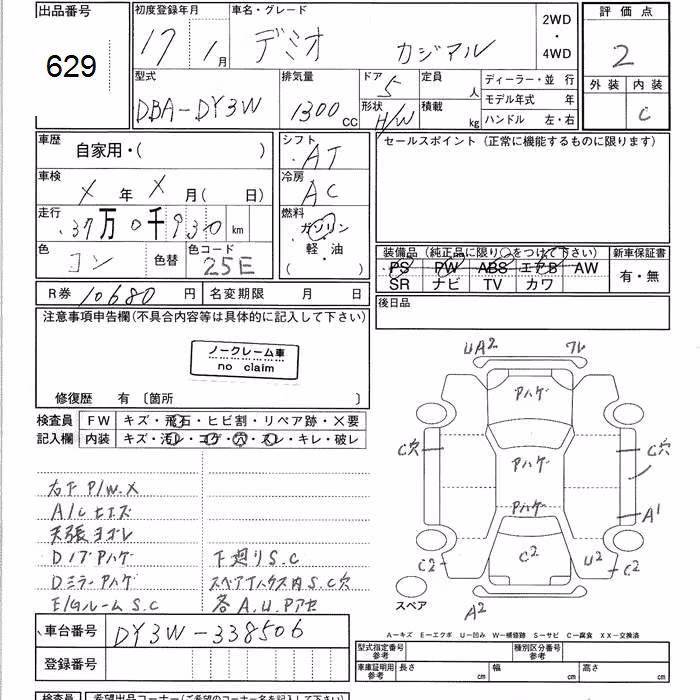 出品番号 初度登録年月 車名・グレード 2WD ・ 4WD 評価点
629 17 1月 デミオ カジアル 2
型式 排気量 ドア 5 定員 人 ディーラー・並 行 外装 内装
DBA-DY3W 1300cc 形状 H/W 積載 kg モデル年式 年 C
ハンドル 左・右
車歴 自家用・( ) シフト AT セールスポイント (正常に機能するものに限ります)
車検 X 年 X 月( 日) 冷房 AC
走行 37万0千930km 燃料 ガソリン・軽・油 ( )
色 コン 色替 色コード 25E
装備品 (純正品に限り○をつけて下さい) 新車保証書
PS PW ABS エアB AW 有・無
SR ナビ TV カワ
R券 10680円 名変期限 月 日 後日品
注意事項申告欄(不具合内容等は具体的に記入して下さい)
ノークレーム車
no claim
修復歴 有 〔箇所 〕
検査員 FW キズ・飛石・ヒビ割・リペア跡・X要
記入欄 内装 キズ・汚レ・コゲ・穴・スレ・キレ・破レ
右下 P/W.X
A/Cヒエズ
天張ヨゴレ
Dノブハゲ 下廻りS.C
Dミラーハゲ スペアTハウス内S.C穴
E/GルームS.C 各A.U.Pアセ
UA2 フレ
Pハゲ
C穴 Pハゲ C穴
Pハゲ A1
C2 C2 U2 C2
スペア A2
車台番号 DY3W-338506
A-キズ E-エクボ U-凹み W-補修跡 S-サビ C-腐食 XX-交換済
登録番号
型式指定番号 参考 種別区分番号 参考
車庫証明用 参考 長さ cm 幅 cm 高さ cm
検査員 希望出品コーナー(ご希望のコーナー名を記入下さい)